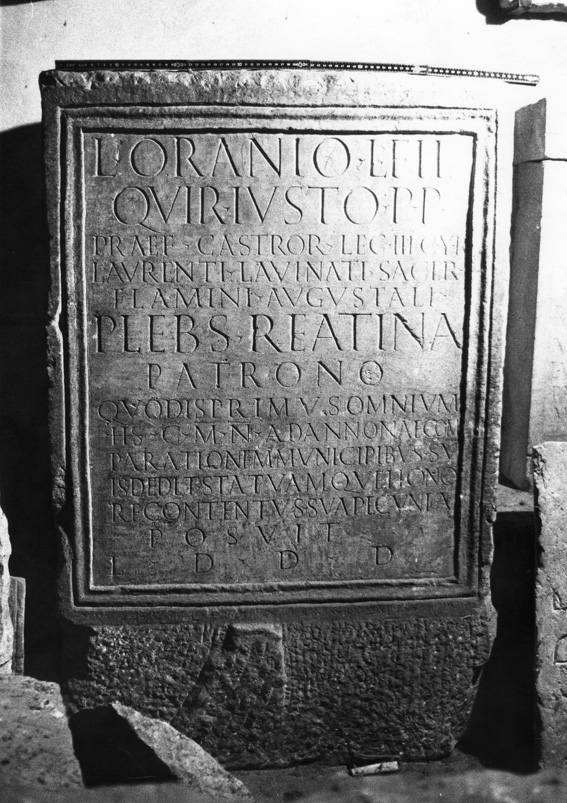 L·ORANIO·L·FIL
QVIR·IVSTO·P·P·
PRAEF·CASTROR·LEG·III·CYR
LAVRENTI·LAVINATI·SACER
FLAMINI·AVGVSTALI
PLEBS·REATINA
PATRONO
QVOD·IS·PRIMVS·OMNIVM
HS·C·M·N·AD·ANNONAE·COM
PARATIONEM·MVNICIPIBVS·SV
IS·DEDIT·STATVAM·QVE·HONO
RE·CONTENTVS·SVA·PECVNIA
POSVIT
L·D·D·D